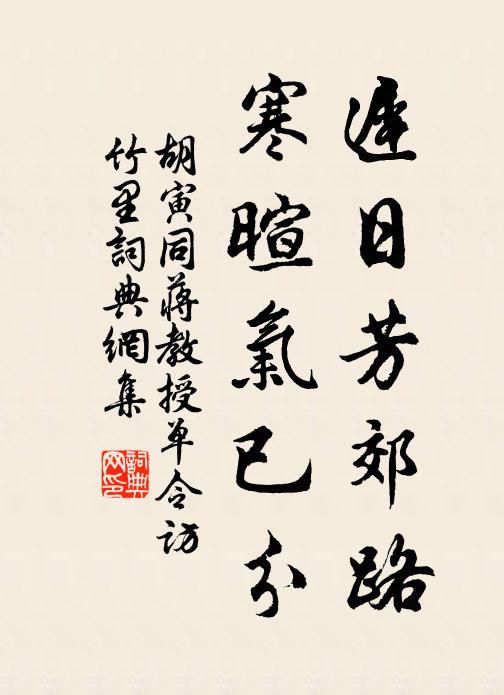 遲日芳郊路
寒暄氣已分
胡寅同蔣教授单令访
竹里詞典網集
詞典网印